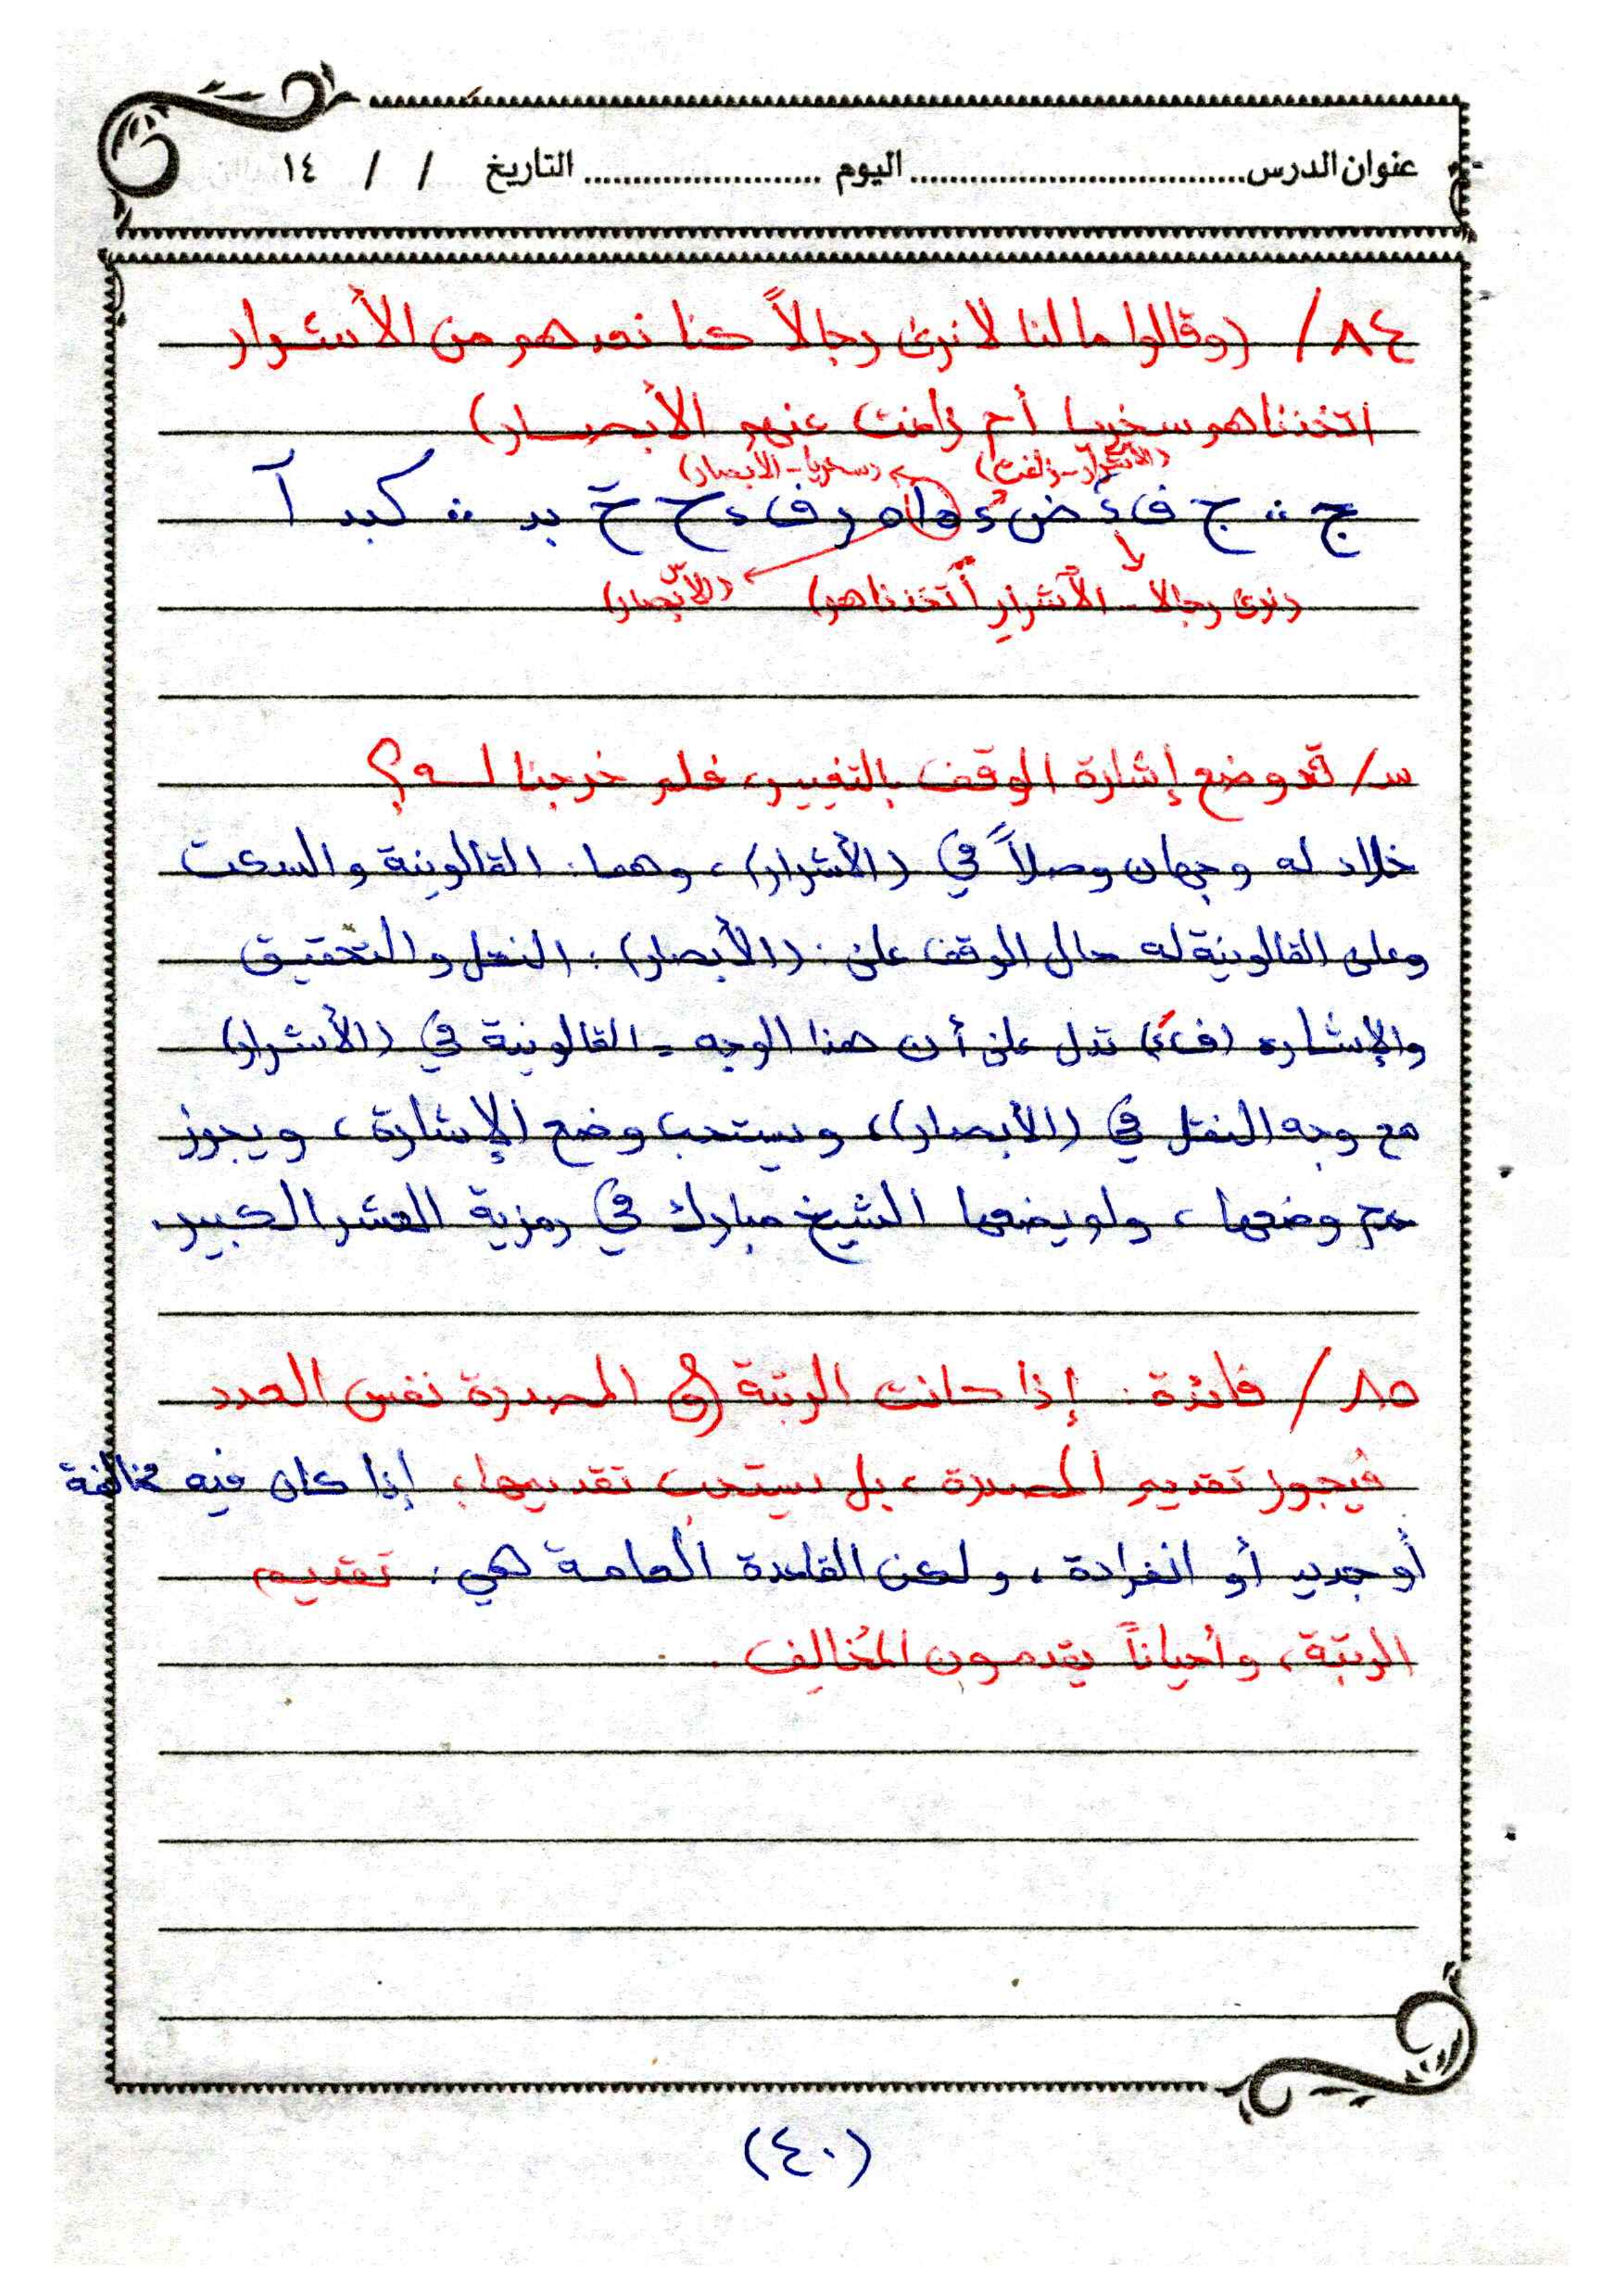 عنوان الدرس.................................. اليوم ........................ التاريخ / / ١٤
٨٤/ (وقالوا مالنا لانرى رجالاً كنا نعدهم من الأشرار
أتخذناهم سخريا أم زاغت عنهم الأبصار)
(الأشرار-زاغت) (سخريا-الأبصار)
ج ∴ ج ف ء ض ء ه اه ر ف ء ح خ يد ∴ كبد آ
(نرى رجالا - الأشرار أتخذناهم) (الأبصار)
س/ قد وضع إشارة الوقف بالتغيير، فلم خرجنا لـه؟
خلاد له وجهان وصلاً في (الأشرار)، وهما: القالونية والسكت
وعلى القالونية له حال الوقف على: (الأبصار): النقل والتحقيق
والإشارة (فء) تدل على أن هذا الوجه = القالونية في (الأشرار)
مع وجه النقل في (الأبصار)، ويستحب وضع الإشارة، ويجوز
عدم وضعها، ولم يضعها الشيخ مبارك في رمزية العشر الكبير.
٨٥/ فائدة: إذا كانت الرتبة في المصدرة نفس العدد
فيجوز تقديم المصدرة، بل يستحب تقديمها، إذا كان فيه مخالفة
أو جديد أو انفرادة، ولكن القاعدة العامة هي: تقديم
الرتبة، وأحياناً يقدمون المُخالِف.
(٤٠)